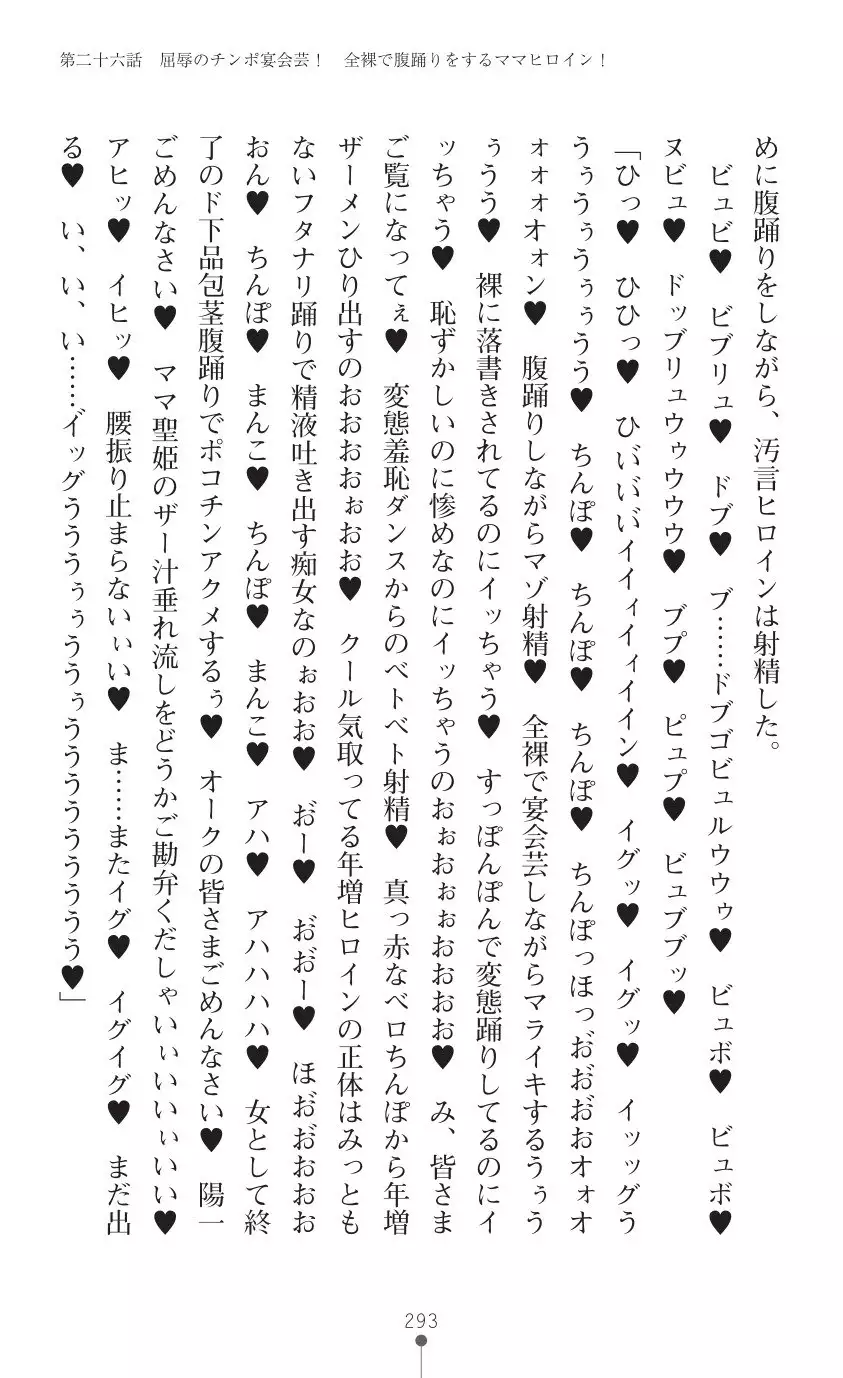 第二十六話　屈辱のチンポ宴会芸！　全裸で腹踊りをするママヒロイン！
めに腹踊りをしながら、汚言ヒロインは射精した。
　ビュビ♥　ビブリュ♥　ドブ♥　ブ……ドブゴビュルウウゥ♥　ビュボ♥　ビュボ♥
ヌビュ♥　ドッブリュウゥウウウ♥　ブプ♥　ピュプ♥　ビュブブッ♥
「ひっ♥　ひひっ♥　ひい゛い゛い゛イイィイィイイン♥　イグッ♥　イグッ♥　イッッグう
うぅうぅうぅぅうう♥　ちんぽ♥　ちんぽ♥　ちんぽ♥　ちんぽっほっお゛お゛お゛おオォオ
ォォォオォン♥　腹踊りしながらマゾ射精♥　全裸で宴会芸しながらマライキするうぅう
ぅうう♥　裸に落書きされてるのにイッちゃう♥　すっぽんぽんで変態踊りしてるのにイ
ッちゃう♥　恥ずかしいのに惨めなのにイッちゃうのおぉおぉぉおおおお♥　み、皆さま
ご覧になってぇ♥　変態羞恥ダンスからのベトベト射精♥　真っ赤なベロちんぽから年増
ザーメンひり出すのおおおおぉおお♥　クール気取ってる年増ヒロインの正体はみっとも
ないフタナリ踊りで精液吐き出す痴女なのぉおお♥　お゛ー♥　お゛お゛ー♥　ほお゛お゛おおお
おん♥　ちんぽ♥　まんこ♥　ちんぽ♥　まんこ♥　アハ♥　アハハハ♥　女として終
了のド下品包茎腹踊りでポコチンアクメするぅ♥　オークの皆さまごめんなさい♥　陽一
ごめんなさい♥　ママ聖姫のザー汁垂れ流しをどうかご勘弁くだしゃいぃいいいぃいい♥
アヒッ♥　イヒッ♥　腰振り止まらないぃい♥　ま……またイグ♥　イグイグ♥　まだ出
る♥　い、い、い……イッグうううぅぅううぅうううううううう♥」
293